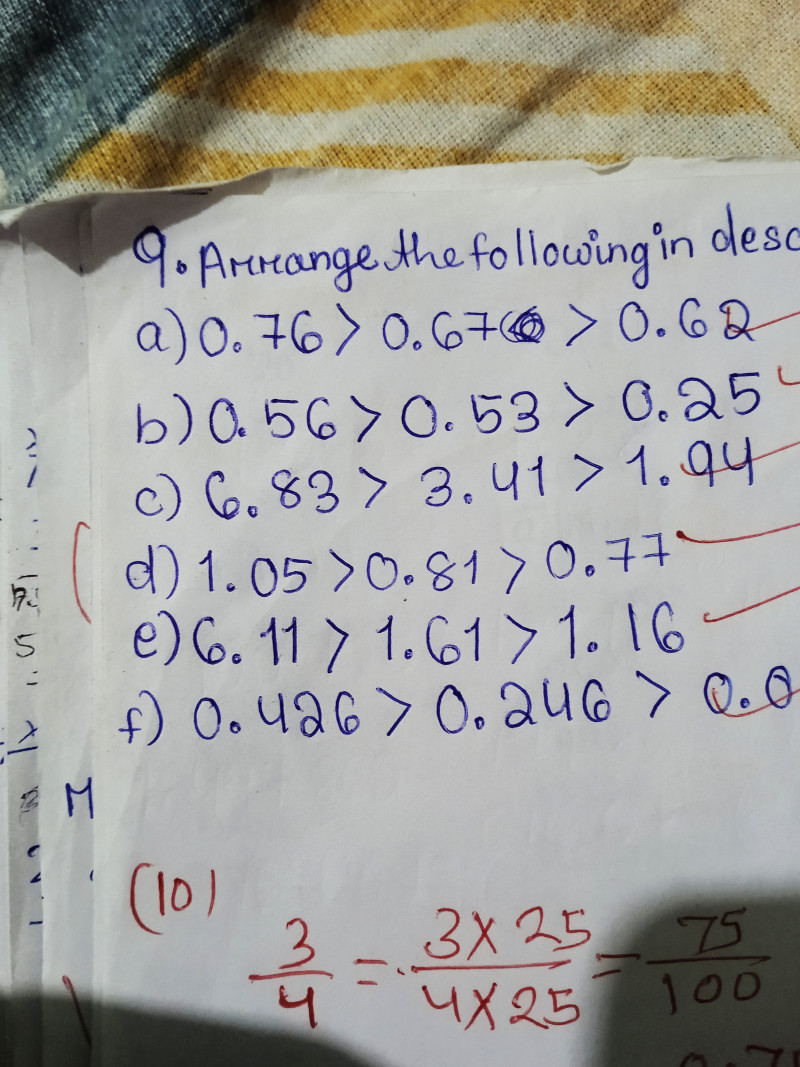 9. Arrange the following in desc
a) 0.76 > 0.67 > 0.62
b) 0.56 > 0.53 > 0.25
c) 6.83 > 3.41 > 1.94
d) 1.05 > 0.81 > 0.77
e) 6.11 > 1.61 > 1.16
f) 0.426 > 0.246 > 0.0
M
(10)
3/4 = 3×25/4×25 = 75/100